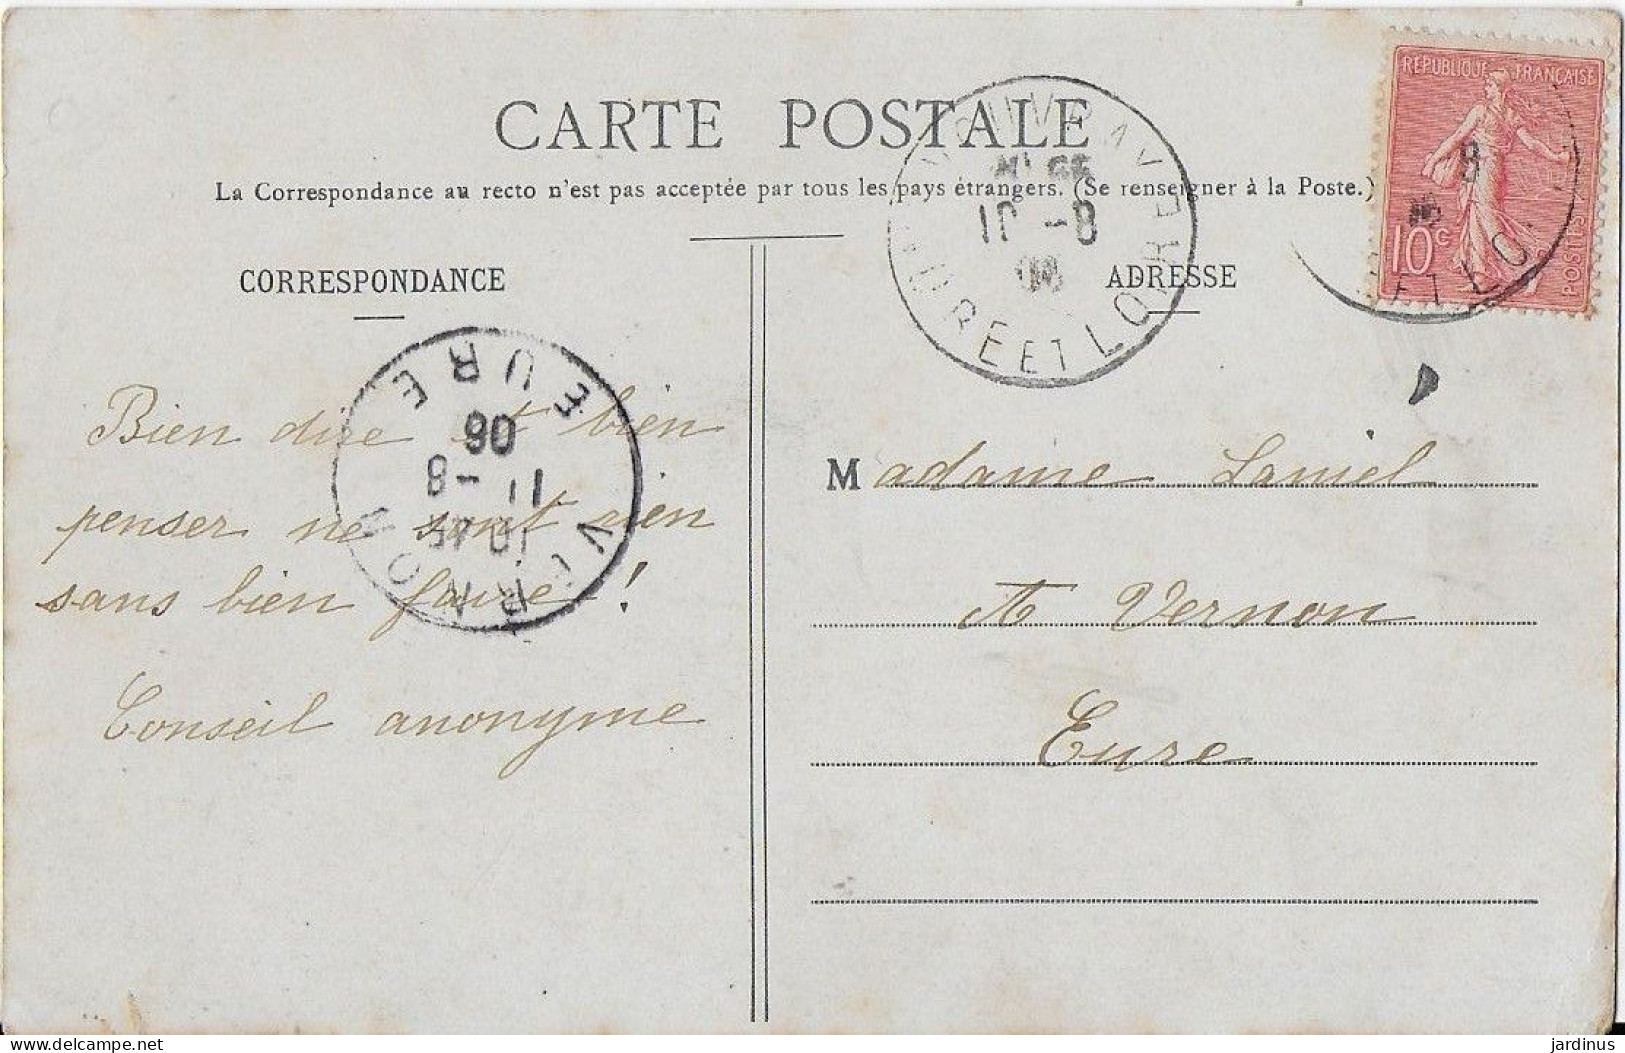 CARTE POSTALE
La Correspondance au recto n'est pas acceptée par tous les pays étrangers. (Se renseigner à la Poste.)
CORRESPONDANCE
ADRESSE
RÉPUBLIQUE FRANÇAISE
10c
POSTES
8
ET LO
10 -8
06
EURE ET LOIRE
VERNON
EURE
10 45
11 -8
06
Bien dire et bien
penser ne sont rien
sans bien faire !
Conseil anonyme
Madame Laniel
A Vernon
Eure
jardinus